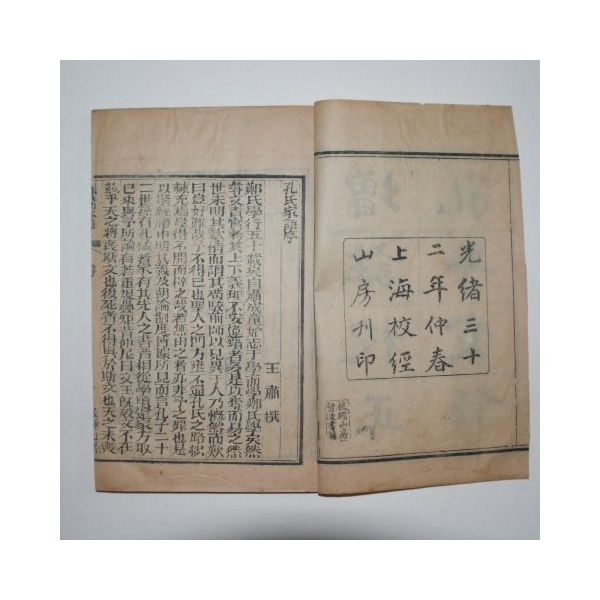 光緒三十
二年仲春
上海校經
山房刊印
孔氏家語序
王肅撰
鄭氏學行五十載矣自肅成童始志于學而學鄭氏學矣然
尋文責實考其上下義理不安違錯者多是以奪而易之然
世未明其款情而謂其苟駁前師以見異于人乃慨然而歎
曰豈好難哉予不得已也聖人之門方壅不通孔氏之路枳
棘充焉豈得不開而辟之哉若無由之者亦非予之罪也是
以撰經禮申明其義及朝論制度皆據所見而言孔子二十
二世孫有孔猛者家有其先人之書昔相從學頃還家方取
已來與予所論有若重規疊矩昔仲尼曰文王旣歿文不在
茲乎天之將喪斯文也後死者不得與於斯文也天之未喪